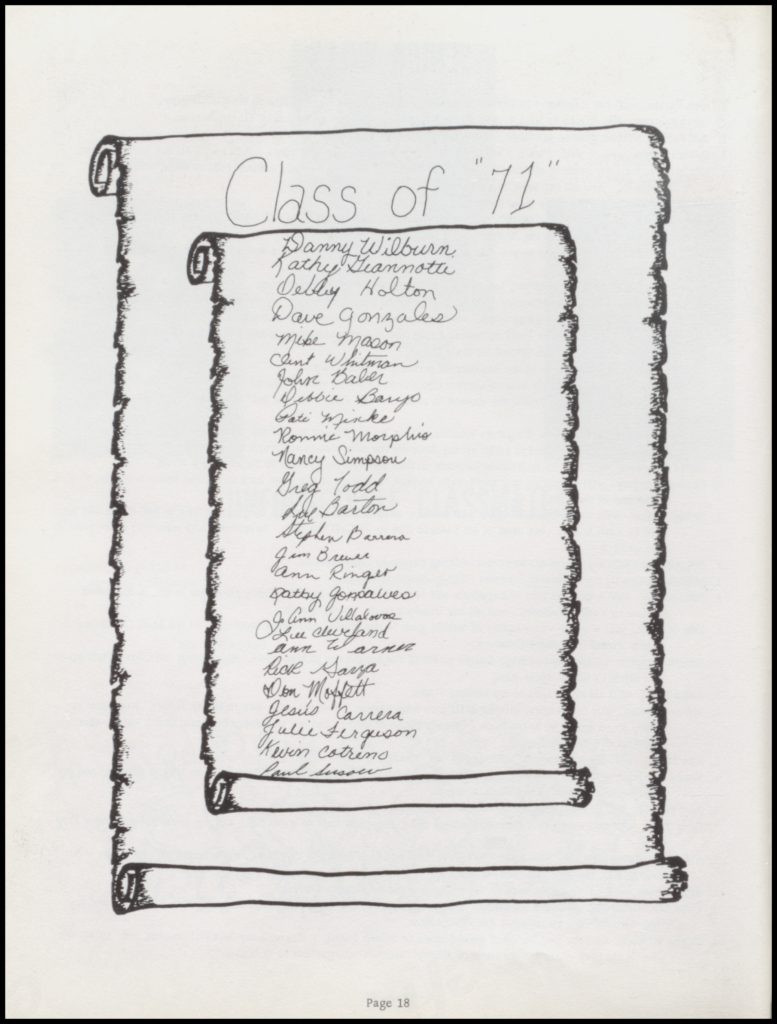 Class of "71"
Danny Wilburn
Kathy Giannotti
Debby Holton
Dave Gonzales
Mike Mason
Clint Whitman
John Baber
Debbie Banjo
Pati Minke
Ronnie Morphis
Nancy Simpson
Greg Todd
Barton
Stephen Barrera
Jim Brewer
Ann Ringer
Kathy Gonsalves
Jo Ann Villalovos
Lee Cleveland
Ann Warner
Rick Garza
Don Moffett
Jesús Carrera
Julie Ferguson
Kevin Cotreno
Paul
Page 18